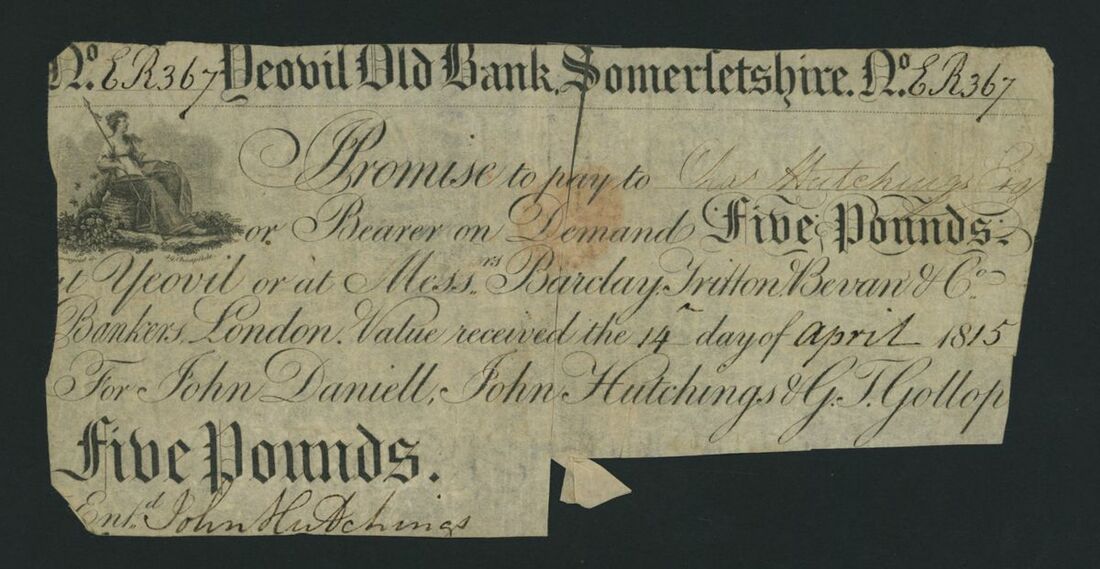 No. ER367 Yeovil Old Bank, Somersetshire. No. ER367
I Promise to pay to Chas Hutchings Esq
or Bearer on Demand Five Pounds.
at Yeovil or at Messrs. Barclay, Tritton, Bevan & Co.
Bankers, London. Value received the 14th day of April 1815
For John Daniell, John Hutchings & G. T. Gollop
Five Pounds.
Entd. John Hutchings